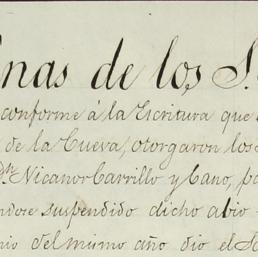 nas de los S.
conforme á la Escritura que
de la Cueva, otorgaron los
Dn Nicanor Carrillo y Cano, pa
ndose suspendido dicho abio
nio del mismo año dio el S